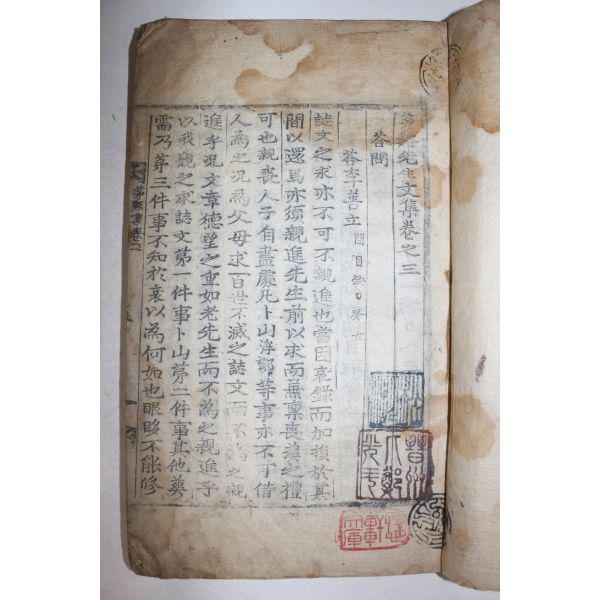 先生文集卷之三
答問
答李善立 問目
誌文之求亦不可不親進也當因哀錄而加損於其
間以還焉亦須親進先生前以求而無稟喪葬之禮
可也親喪人子自盡處凡卜山浮等事亦不可借
人為之况為父母求百世不滅之誌文而不為之親
進乎况文章德望之重如老先生而不為之親進乎
以我觀之求誌文第一件事卜山第二件事其他葬
需乃第三件事不知於哀以為何如也眼眵不能修